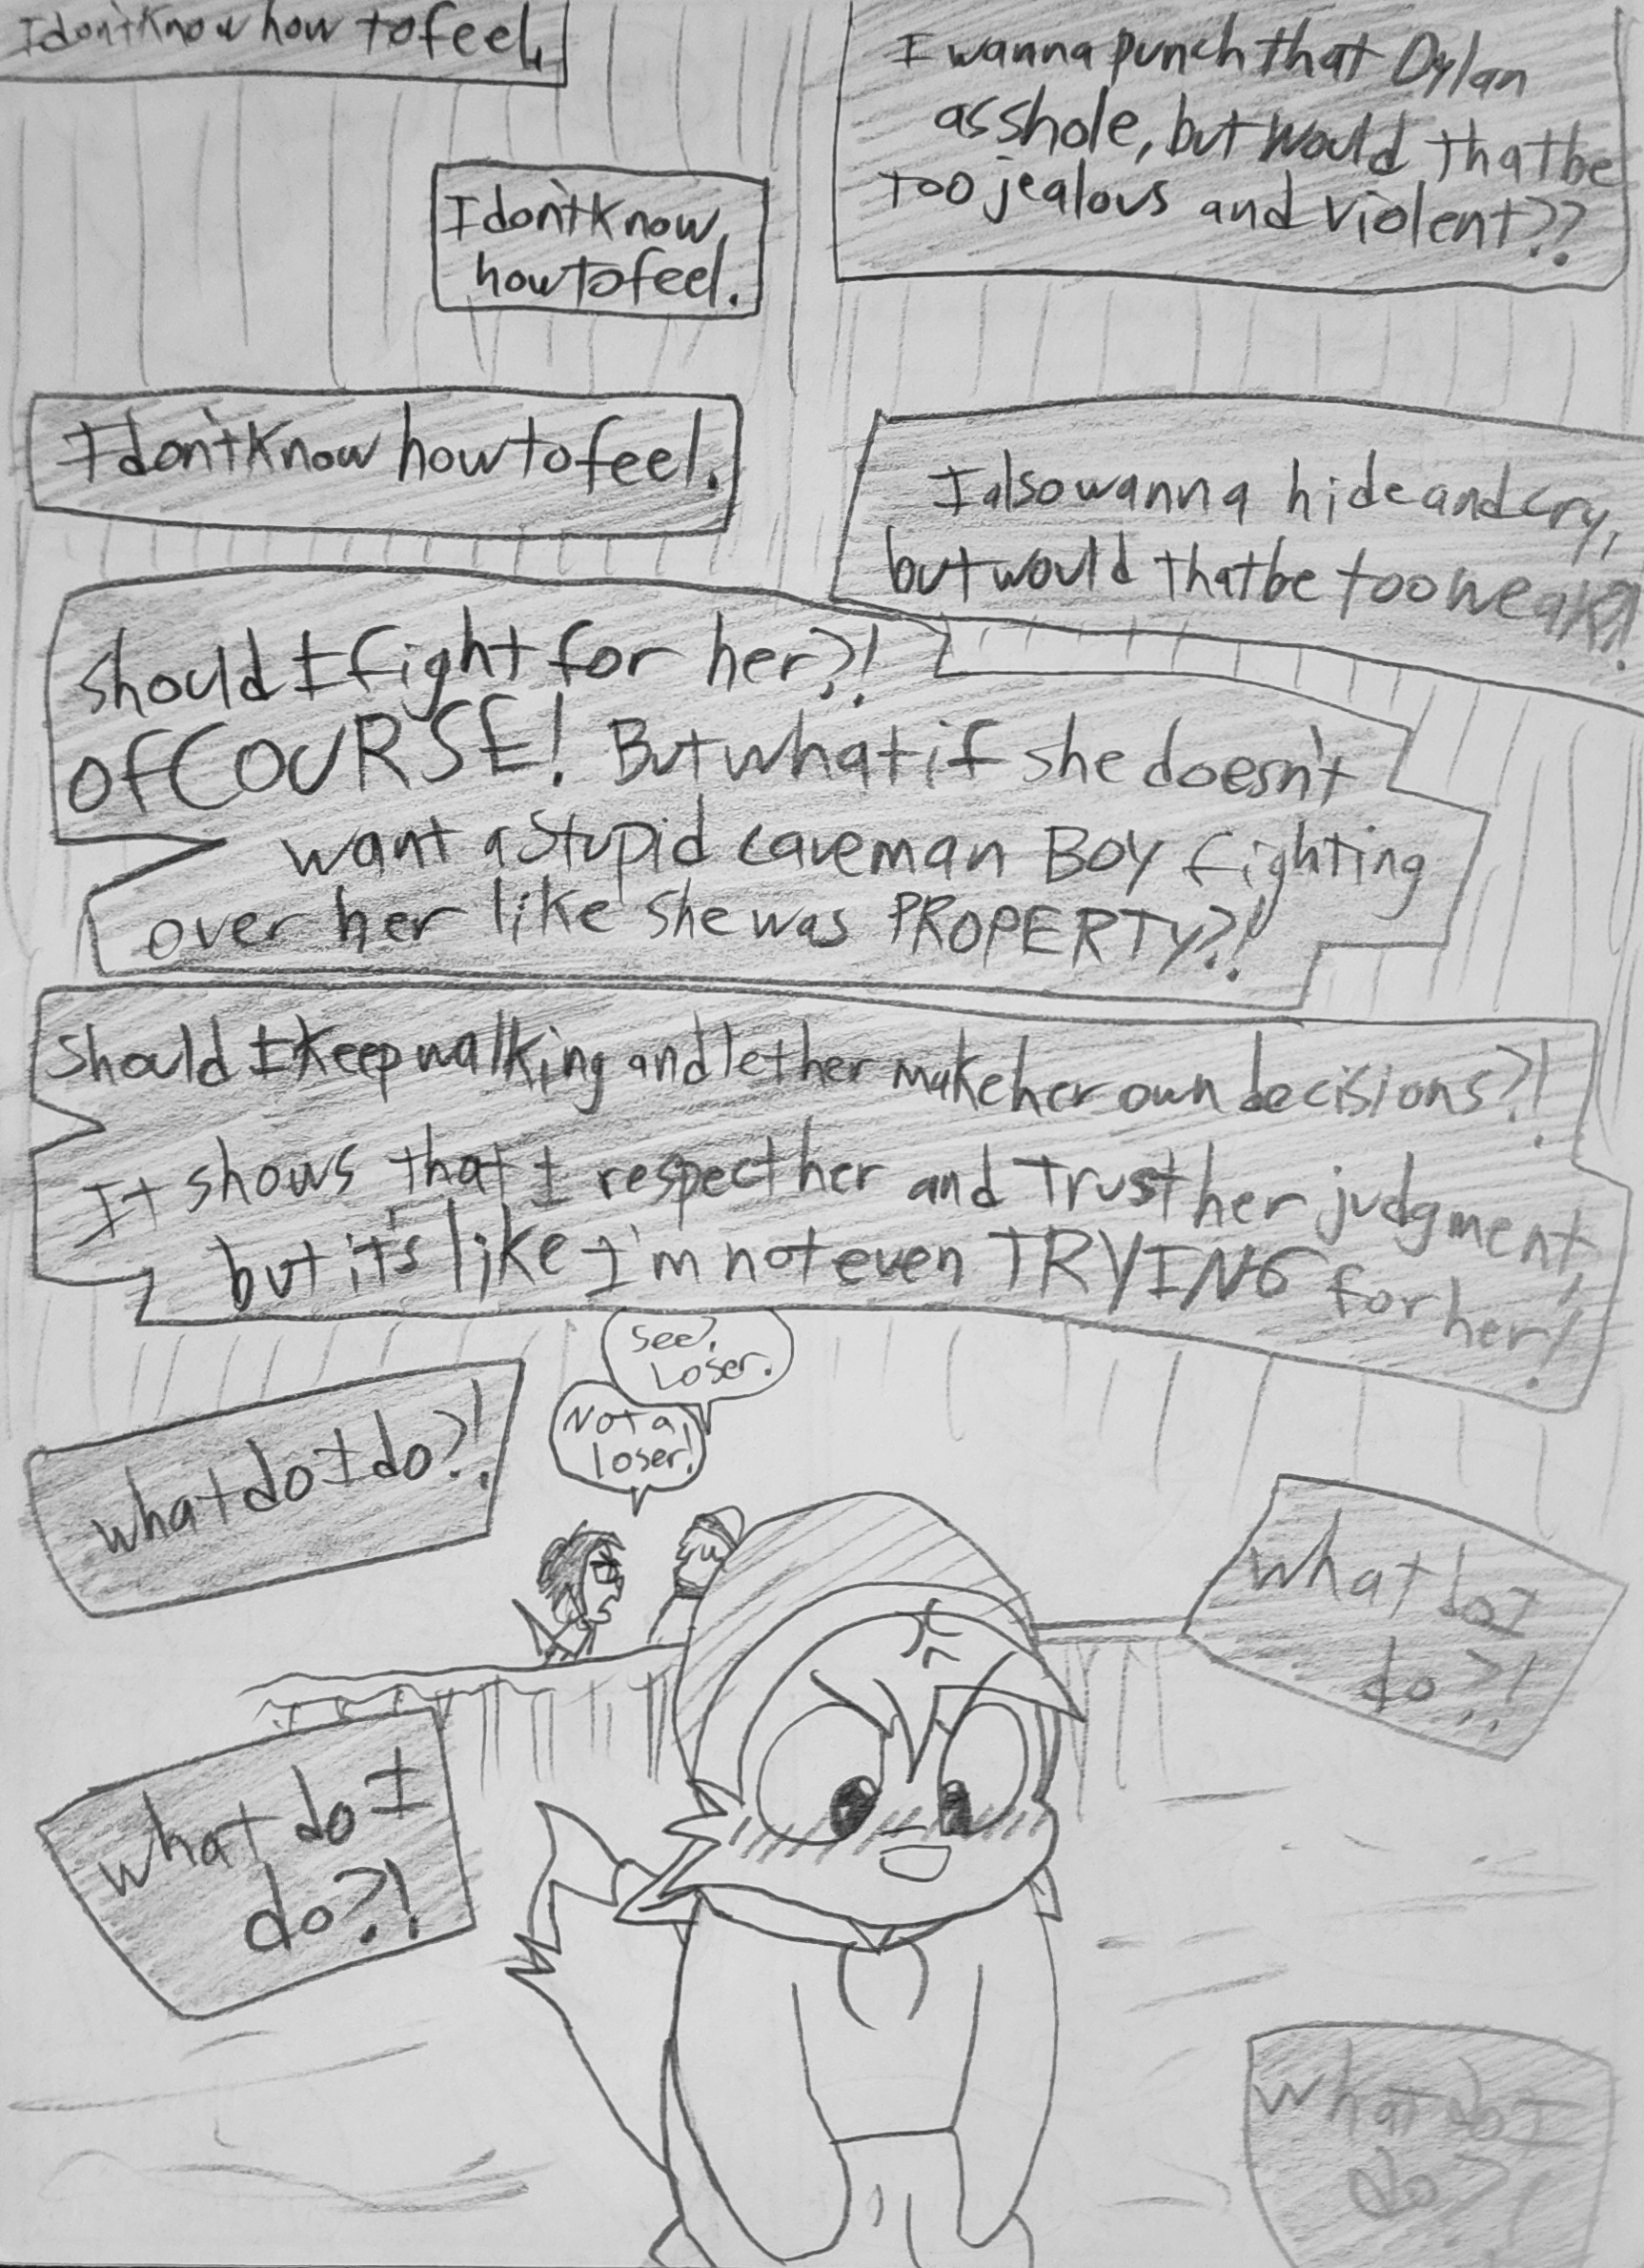 I don't know how to feel.
I don't know
how to feel.
I don't know how to feel.
I wanna punch that Dylan
asshole, but would that be
too jealous and violent??
I also wanna hide and cry,
but would that be too weak?!
Should I fight for her?!
Of COURSE! But what if she doesn't
want a stupid caveman BOY fighting
over her like she was PROPERTY?!
Should I keep walking and let her make her own decisions?!
It shows that I respect her and trust her judgment,
but it's like I'm not even TRYING for her!
See?
Loser.
Not a
loser!
What do I do?!
What do I
do?!
What do I
do?!
What do I
do?!